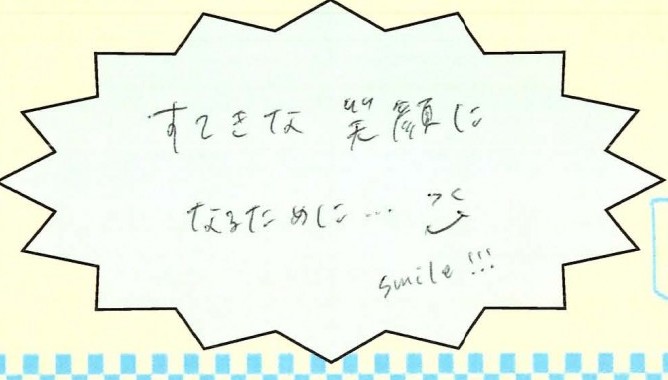 すてきな 笑顔に
なるために…
smile!!!